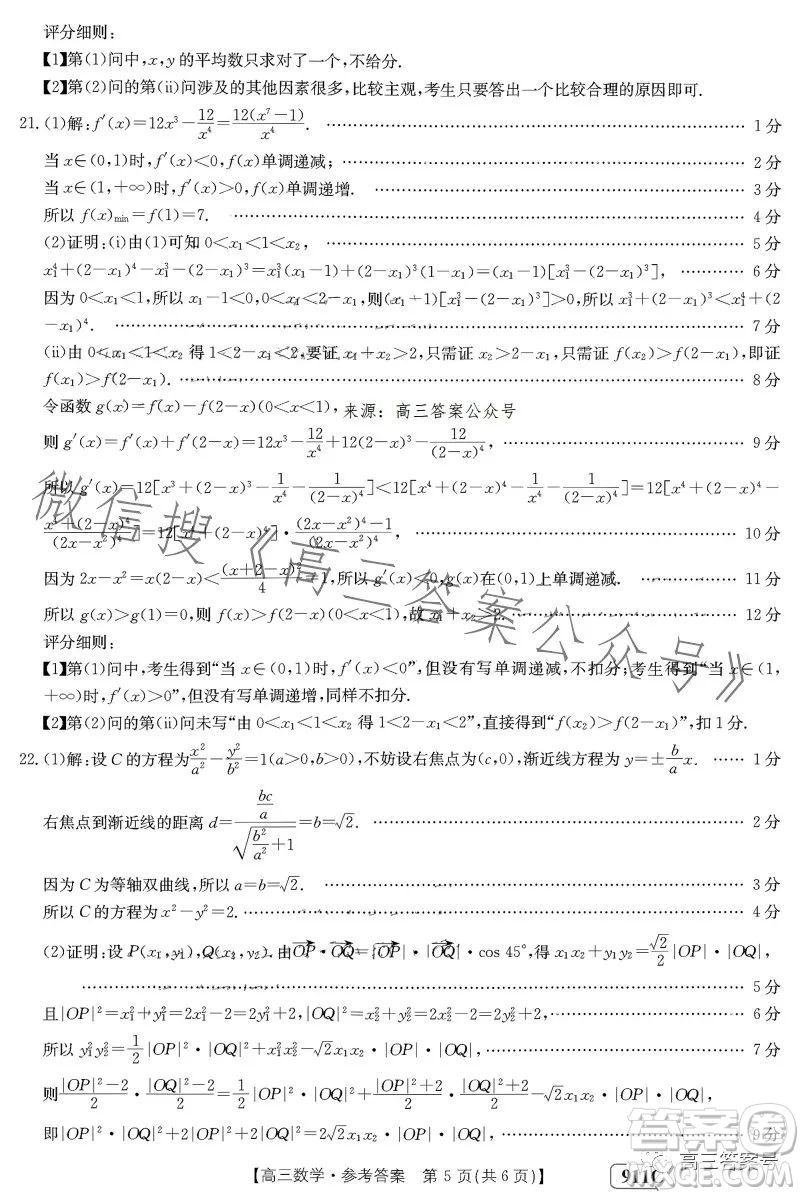 评分细则:
【1】第(1)问中,x,y的平均数只求对了一个,不给分.
【2】第(2)问的第(ii)问涉及的其他因素很多,比较主观,考生只要答出一个比较合理的原因即可.
21.(1)解:f′(x)=12x³-12/x⁴=12(x⁷-1)/x⁴. …… 1分
当x∈(0,1)时,f′(x)<0,f(x)单调递减; …… 2分
当x∈(1,+∞)时,f′(x)>0,f(x)单调递增. …… 3分
所以f(x)min=f(1)=7. …… 4分
(2)证明:(i)由(1)可知0<x₁<1<x₂, …… 5分
x₁⁴+(2-x₁)⁴-x₁³-(2-x₁)³=x₁³(x₁-1)+(2-x₁)³(1-x₁)=(x₁-1)[x₁³-(2-x₁)³], …… 6分
因为0<x₁<1,所以x₁-1<0,0<x₁<2-x₁,则(x₁-1)[x₁³-(2-x₁)³]>0,所以x₁³+(2-x₁)³<x₁⁴+(2
-x₁)⁴. …… 7分
(ii)由0<x₁<1<x₂得1<2-x₁<2,要证x₁+x₂>2,只需证x₂>2-x₁,只需证f(x₂)>f(2-x₁),即证
f(x₁)>f(2-x₁). …… 8分
令函数g(x)=f(x)-f(2-x)(0<x<1), 来源:高三答案公众号
则g′(x)=f′(x)+f′(2-x)=12x³-12/x⁴+12(2-x)³-12/(2-x)⁴, …… 9分
所以g′(x)=12[x³+(2-x)³-1/x⁴-1/(2-x)⁴]<12[x⁴+(2-x)⁴-1/x⁴-1/(2-x)⁴]=12[x⁴+(2-x)⁴-
x⁴+(2-x)⁴/(2x-x²)⁴]=12[x⁴+(2-x)⁴]·(2x-x²)⁴-1/(2x-x²)⁴. …… 10分
因为2x-x²=x(2-x)<(x+2-x)²/4=1,所以g′(x)<0,g(x)在(0,1)上单调递减. …… 11分
所以g(x)>g(1)=0,则f(x)>f(2-x)(0<x<1),故x₁+x₂>2. …… 12分
评分细则:
【1】第(1)问中,考生得到“当x∈(0,1)时,f′(x)<0”,但没有写单调递减,不扣分;考生得到“当x∈(1,
+∞)时,f′(x)>0”,但没有写单调递增,同样不扣分.
【2】第(2)问的第(ii)问未写“由0<x₁<1<x₂得1<2-x₁<2”,直接得到“f(x₁)>f(2-x₁)”,扣1分.
22.(1)解:设C的方程为x²/a²-y²/b²=1(a>0,b>0),不妨设右焦点为(c,0),渐近线方程为y=±b/a x. …… 1分
右焦点到渐近线的距离d=(bc/a)/√(b²/a²+1)=b=√2. …… 2分
因为C为等轴双曲线,所以a=b=√2. …… 3分
所以C的方程为x²-y²=2. …… 4分
(2)证明:设P(x₁,y₁),Q(x₂,y₂).由OP·OQ=|OP|·|OQ|·cos 45°,得x₁x₂+y₁y₂=√2/2|OP|·|OQ|,
…… 5分
且|OP|²=x₁²+y₁²=2x₁²-2=2y₁²+2,|OQ|²=x₂²+y₂²=2x₂²-2=2y₂²+2, …… 6分
所以y₁²y₂²=1/2|OP|²·|OQ|²+x₁²x₂²-√2x₁x₂·|OP|·|OQ|, …… 7分
则|OP|²-2/2·|OQ|²-2/2=1/2|OP|²·|OQ|²+|OP|²+2/2·|OQ|²+2/2-√2x₁x₂·|OP|·|OQ|,
即|OP|²·|OQ|²+2|OP|²+2|OQ|²=2√2x₁x₂·|OP|·|OQ|, …… 9分
【高三数学·参考答案 第5页(共6页)】
911C
微信搜《高三答案公众号》
答案圈
高三答案号